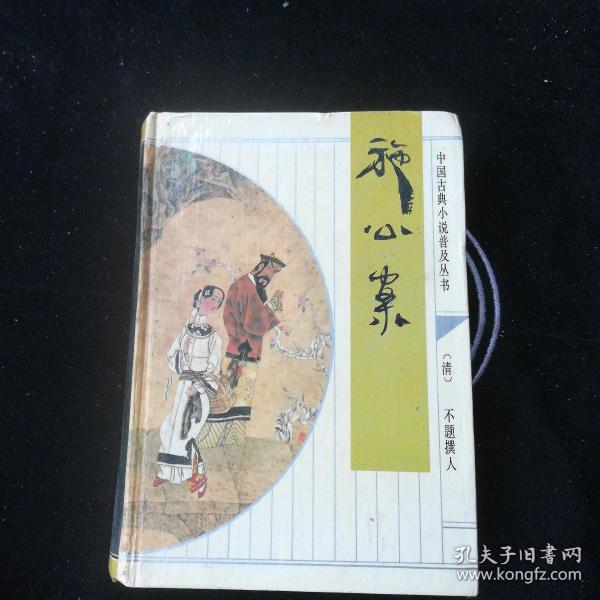 施公案
中国古典小说普及丛书
〔清〕 不题撰人
孔夫子旧书网
www.kongfz.com